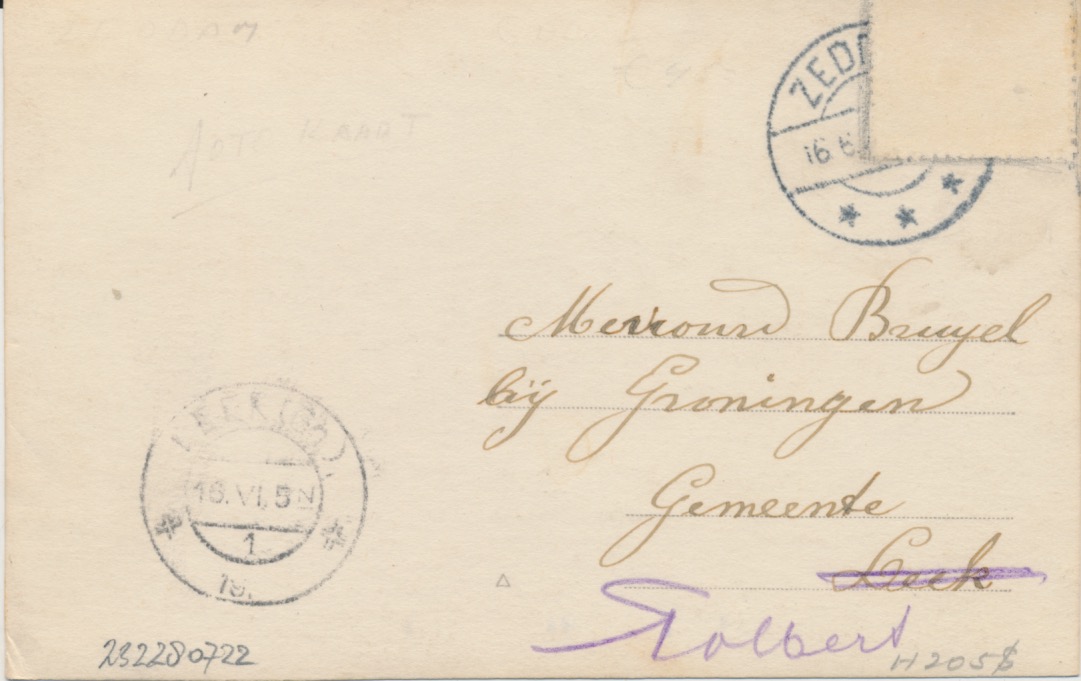 ZED
16 6
Mevrouw Bruyel
bij Groningen
Gemeente
Leek
Tolbert
LEEK (GR.)
16.VI.5N
1
19.
232280722
H205$